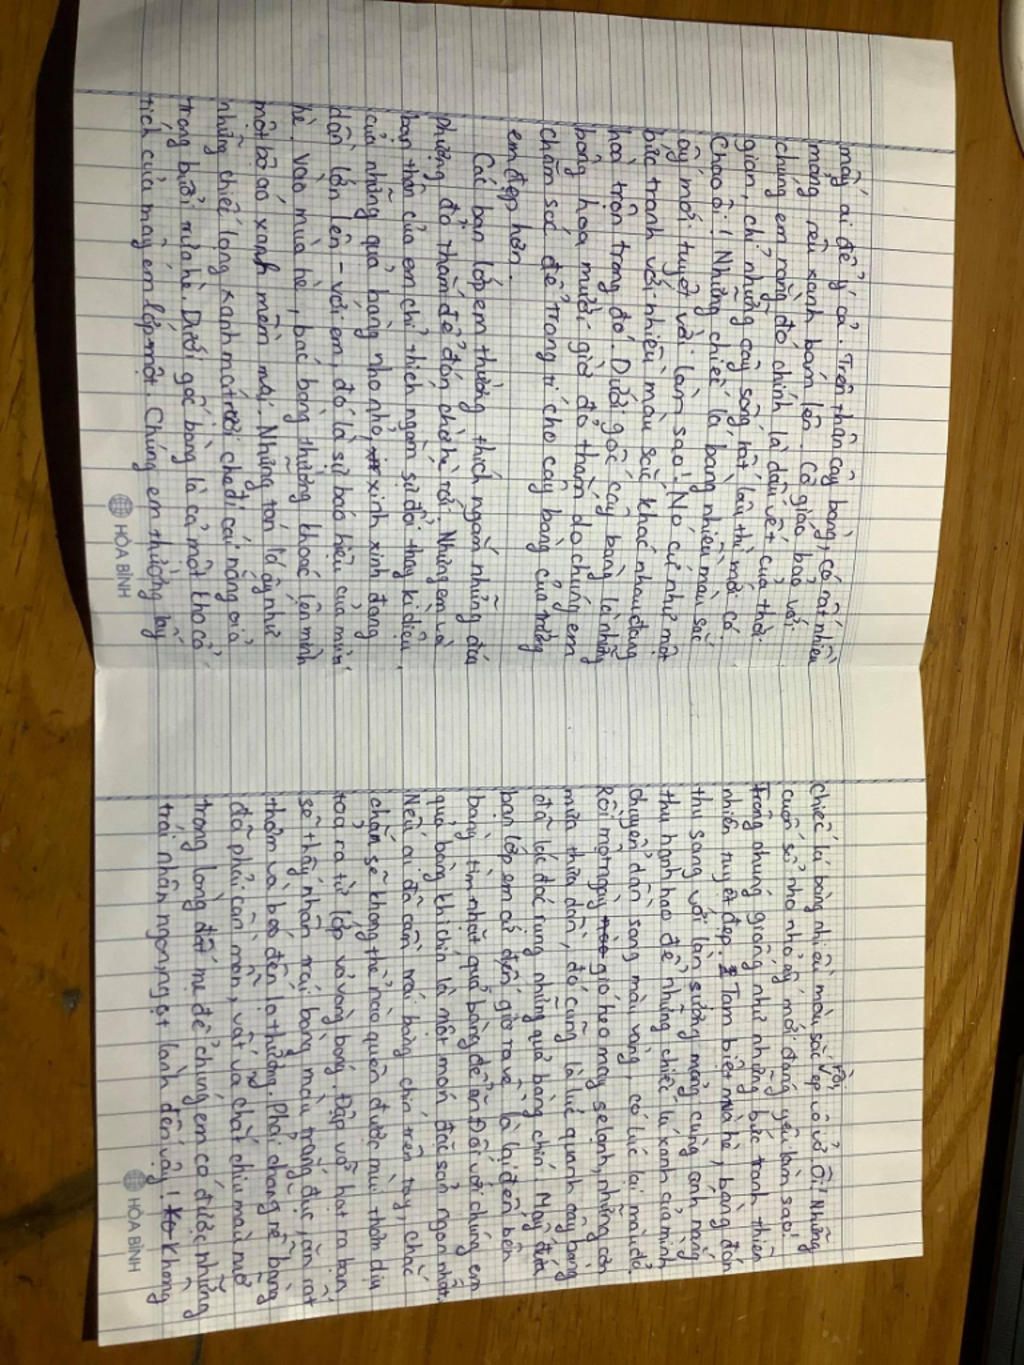 mấy ai để ý cả. Trên thân cây bàng, có rất nhiều
mảng rêu xanh bám lên. Cô giáo bảo với
chúng em rằng đó chính là dấu vết của thời
gian, chỉ những cây sống rất lâu thì mới có.
Chao ôi! Những chiếc lá bàng nhiều màu sắc
ấy mới tuyệt vời làm sao! Nó cứ như một
bức tranh với nhiều màu sắc khác nhau đang
hoà trộn trong đó. Dưới gốc cây bàng là những
bông hoa mười giờ đỏ thắm do chúng em
chăm sóc để trang trí cho cây bàng của trường
em đẹp hơn.
Các bạn lớp em thường thích ngắm những đóa
phượng đỏ thắm để đón chờ hè tới. Nhưng em và
bạn thân của em chỉ thích ngắm sự đổi thay kì diệu
của những quả bàng nho nhỏ, xinh xinh đang
dần lớn lên - với em, đó là sự báo hiệu của mùa
hè. Vào mùa hè, bác bàng thường khoác lên mình
một bộ áo xanh mềm mại. Những tán lá ấy như
những chiếc lọng xanh mát rười che đi cái nắng oi ả
trong buổi mùa hè. Dưới gốc bàng là cả một kho cổ
tích của mấy em lớp một. Chúng em thường lấy
HÒA BÌNH
chiếc lá bàng nhiều màu sắc rồi ép vô vở. Ôi! Những
cuốn sổ nho nhỏ ấy mới đáng yêu làm sao!
Trông chúng giống như những bức tranh thiên
nhiên tuyệt đẹp. Tạm biệt mùa hè, bàng đón
thu sang với làn sương mỏng cùng ánh nắng
thu hanh hao để những chiếc lá xanh của mình
chuyển dần sang màu vàng, có lúc lại màu đỏ.
Rồi một ngày gió heo may se lạnh, những cơn
mưa thưa dần, đó cũng là lúc quanh cây bàng
đã lác đác rụng những quả bàng chín. Mấy đứa
bạn lớp em cứ đến giờ ra về là lại đến bên
bàng tìm nhặt quả bàng để ăn. Đối với chúng em
quả bàng thị chín là một món đặc sản ngon nhất.
Nếu ai đã cầm trái bàng chín trên tay, chắc
chắn sẽ không thể nào quên được mùi thơm dịu
toả ra từ lớp vỏ vàng bóng. Đập vỡ hạt ra bạn
sẽ thấy nhân trái bàng màu trắng đục, ăn rất
thơm và béo đến lạ thường. Phải chăng rễ bàng
đã phải cần mẫn, vất vả chắt chiu màu mỡ
trong lòng đất mẹ để chúng em có được những
trái nhân ngon, ngọt lành đến vậy! Không
HÒA BÌNH